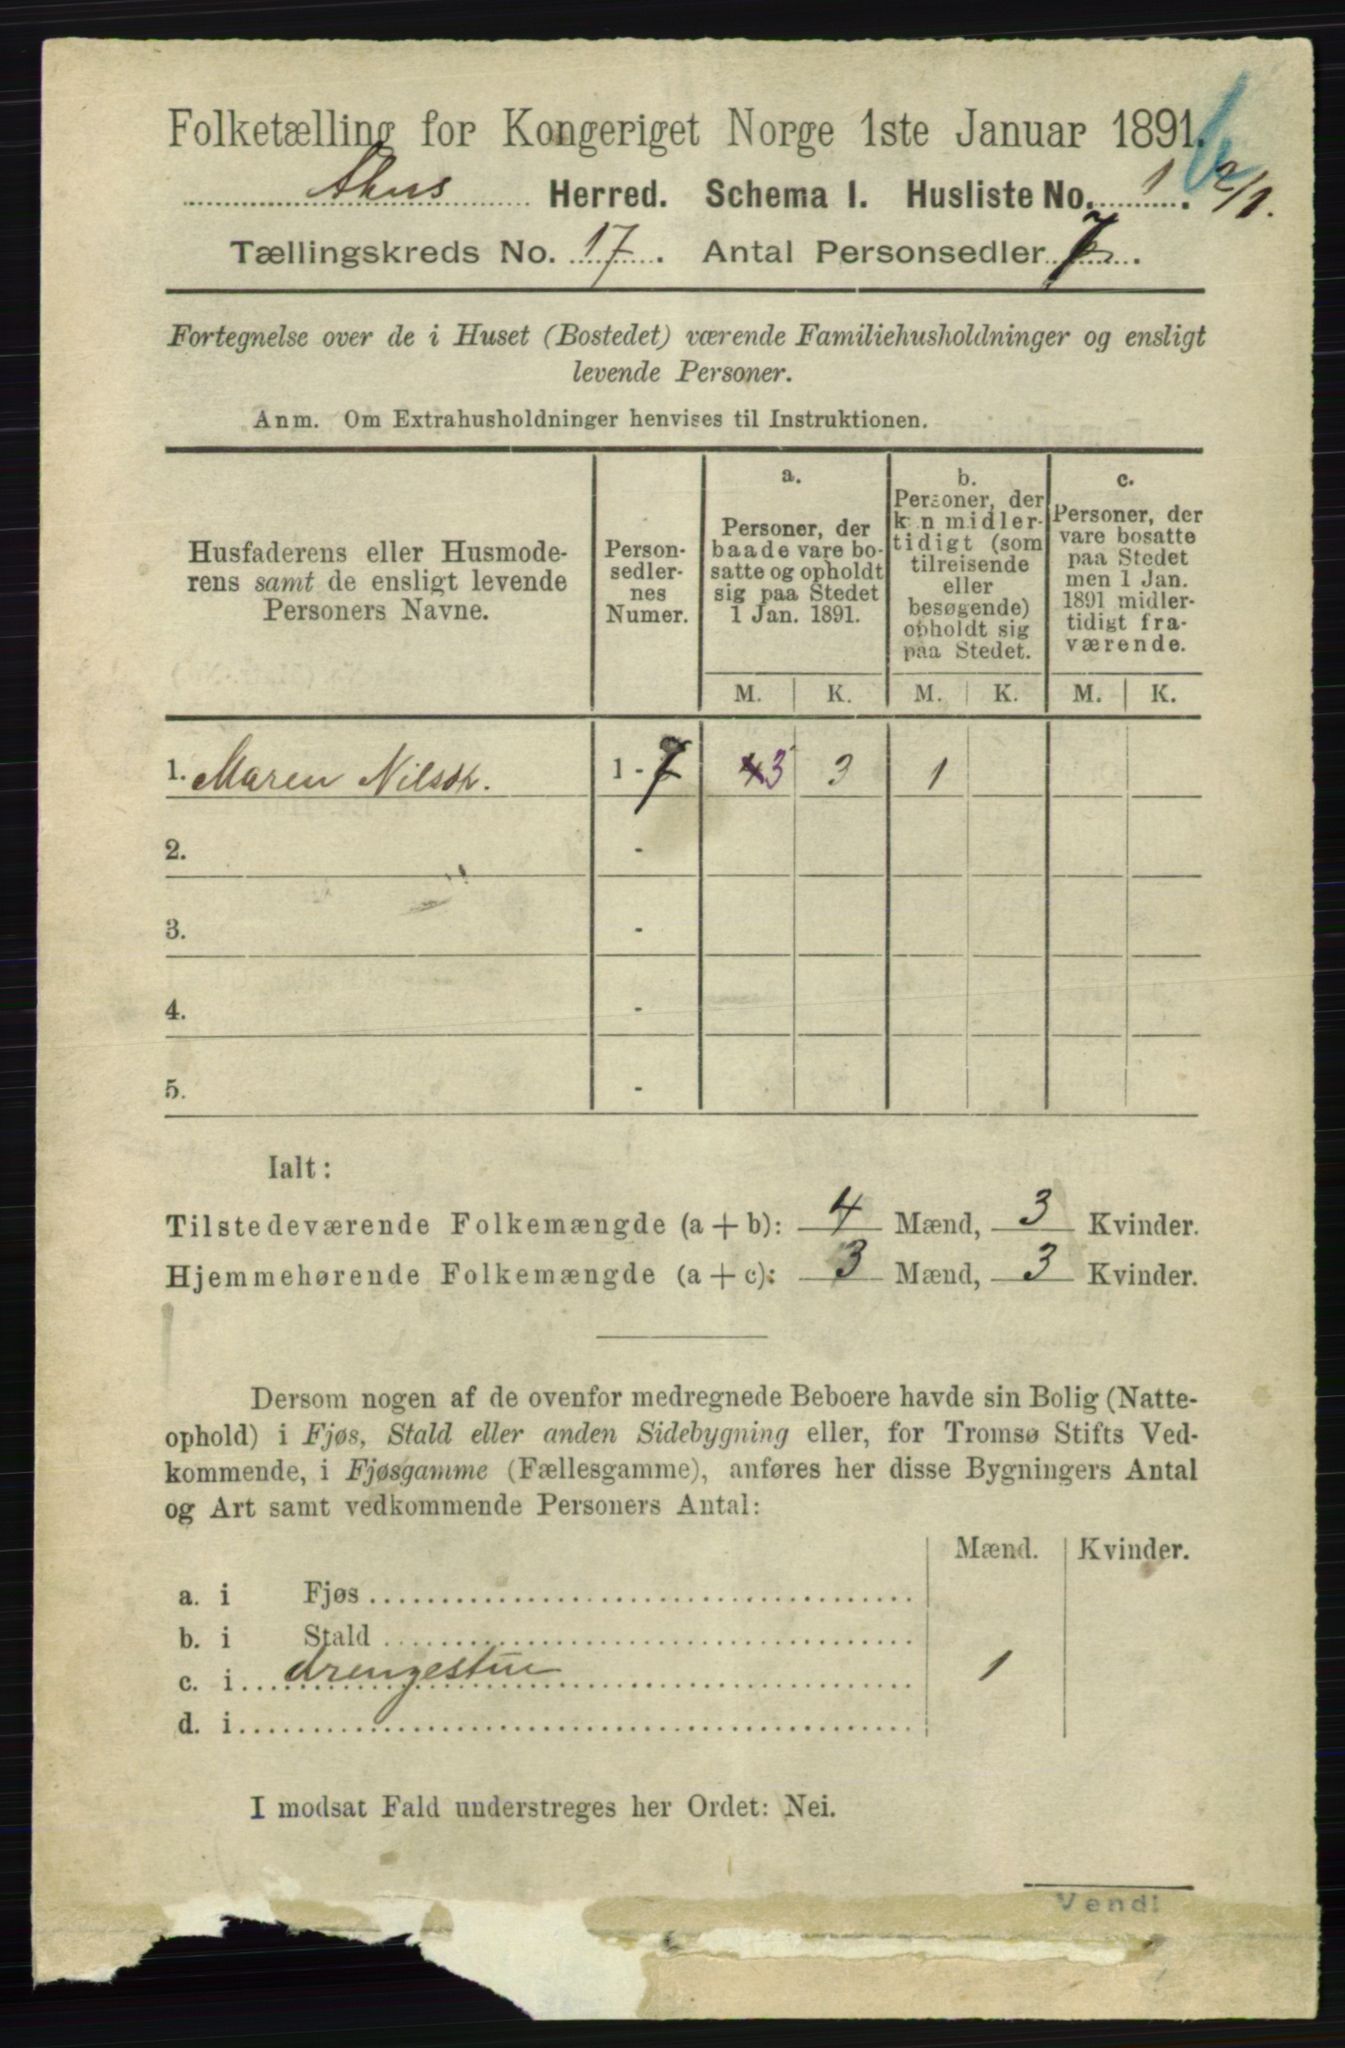 Folketælling for Kongeriget Norge 1ste Januar 1891.
Herred. Schema I. Husliste No. 1. 2/1.
Tællingskreds No. 17. Antal Personsedler 7.
Fortegnelse over de i Huset (Bostedet) værende Familiehusholdninger og ensligt
levende Personer.
Anm. Om Extrahusholdninger henvises til Instruktionen.
Husfaderens eller Husmode-
rens samt de ensligt levende
Personers Navne.
Person-
sedler-
nes
Numer.
a.
Personer, der
baade vare bo-
satte og opholdt
sig paa Stedet
1 Jan. 1891.
b.
Personer, der
kun midler-
tidigt (som
tilreisende
eller
besøgende)
opholdt sig
paa Stedet.
c.
Personer, der
vare bosatte
paa Stedet
men 1 Jan.
1891 midler-
tidigt fra-
værende.
M. K. M. K. M. K.
1. Maren Nilsdt. 1 - 7 3 3 1
2. -
3. -
4. -
5. -
Ialt:
Tilstedeværende Folkemængde (a + b): 4 Mænd, 3 Kvinder.
Hjemmehørende Folkemængde (a + c): 3 Mænd, 3 Kvinder.
Dersom nogen af de ovenfor medregnede Beboere havde sin Bolig (Natte-
ophold) i Fjøs, Stald eller anden Sidebygning eller, for Tromsø Stifts Ved-
kommende, i Fjøsgamme (Fællesgamme), anføres her disse Bygningers Antal
og Art samt vedkommende Personers Antal:
Mænd. Kvinder.
a. i Fjøs
b. i Stald
c. i drengestue 1
d. i
I modsat Fald understreges her Ordet: Nei.
Vend!